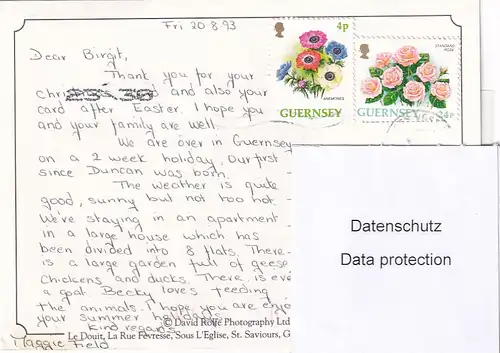 Fri 20.8.93
Dear Birgit,
Thank you for your
and also your
card after Easter. I hope you
and your family are well.
We are over in Guernsey
on a 2 week holiday. Our first
since Duncan was born.
The weather is quite
good, sunny but not too hot.
We're staying in an apartment
in a large house which has
been divided into 8 flats. There
is a large garden full of geese
chickens and ducks. There is eve
a goat. Becky loves feeding
the animals. I hope you are enjo
your summer holidays.
Kind regards,
Maggie Field
© David Rolfe Photography Ltd
Le Douit, La Rue Fevresse, Sous L'Eglise, St. Saviours, G
4p
ANEMONES
GUERNSEY
STANDARD
ROSE
GUERNSEY
24p
Datenschutz
Data protection